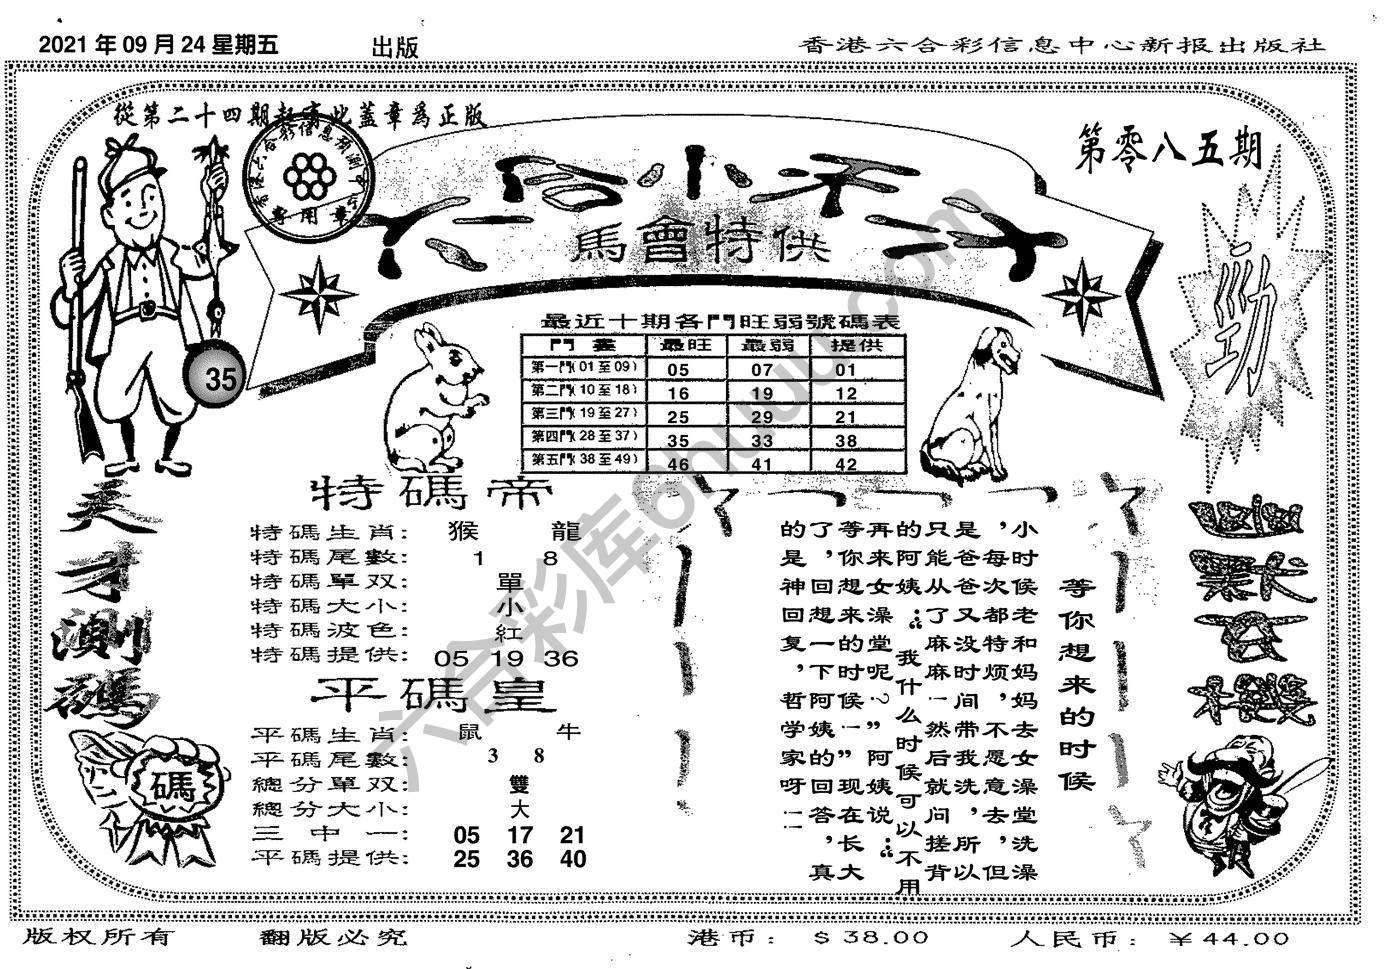 2021年09月24星期五
出版
香港六合彩信息中心新报出版社
從第二十四期起蓋此蓋章爲正版
香港六合彩信息预測
專用章
第零八五期
六合小天
馬會特供
勁
35
最近十期各門旺弱號碼表
門 最旺 最弱 提供
第一門(01至09) 05 07 01
第二門(10至18) 16 19 12
第三門(19至27) 25 29 21
第四門(28至37) 35 33 38
第五門(38至49) 46 41 42
天才測碼
碼
特碼帝
特碼生肖: 猴 龍
特碼尾數: 1 8
特碼單双: 單
特碼大小: 小
特碼波色: 紅
特碼提供: 05 19 36
平碼皇
平碼生肖: 鼠 牛
平碼尾數: 3 8
總分單双: 雙
總分大小: 大
三中一: 05 17 21
平碼提供: 25 36 40
等你想来的时候
小时候老和妈妈去女澡堂洗澡
，每次都特烦，不愿意去，但
是爸爸又没时间带我洗，所以
只能从了，麻麻一然后就问搓背
的阿姨：“我什么时候可以不用
再来女澡堂呢？”阿姨说：“
等你想来的时候一”现在长大
了，回想一下阿姨的回答，真
的是神回复，哲学家呀！！
六合彩库6huu.com
版权所有
翻版必究
港币：＄38.00
人民币：￥44.00